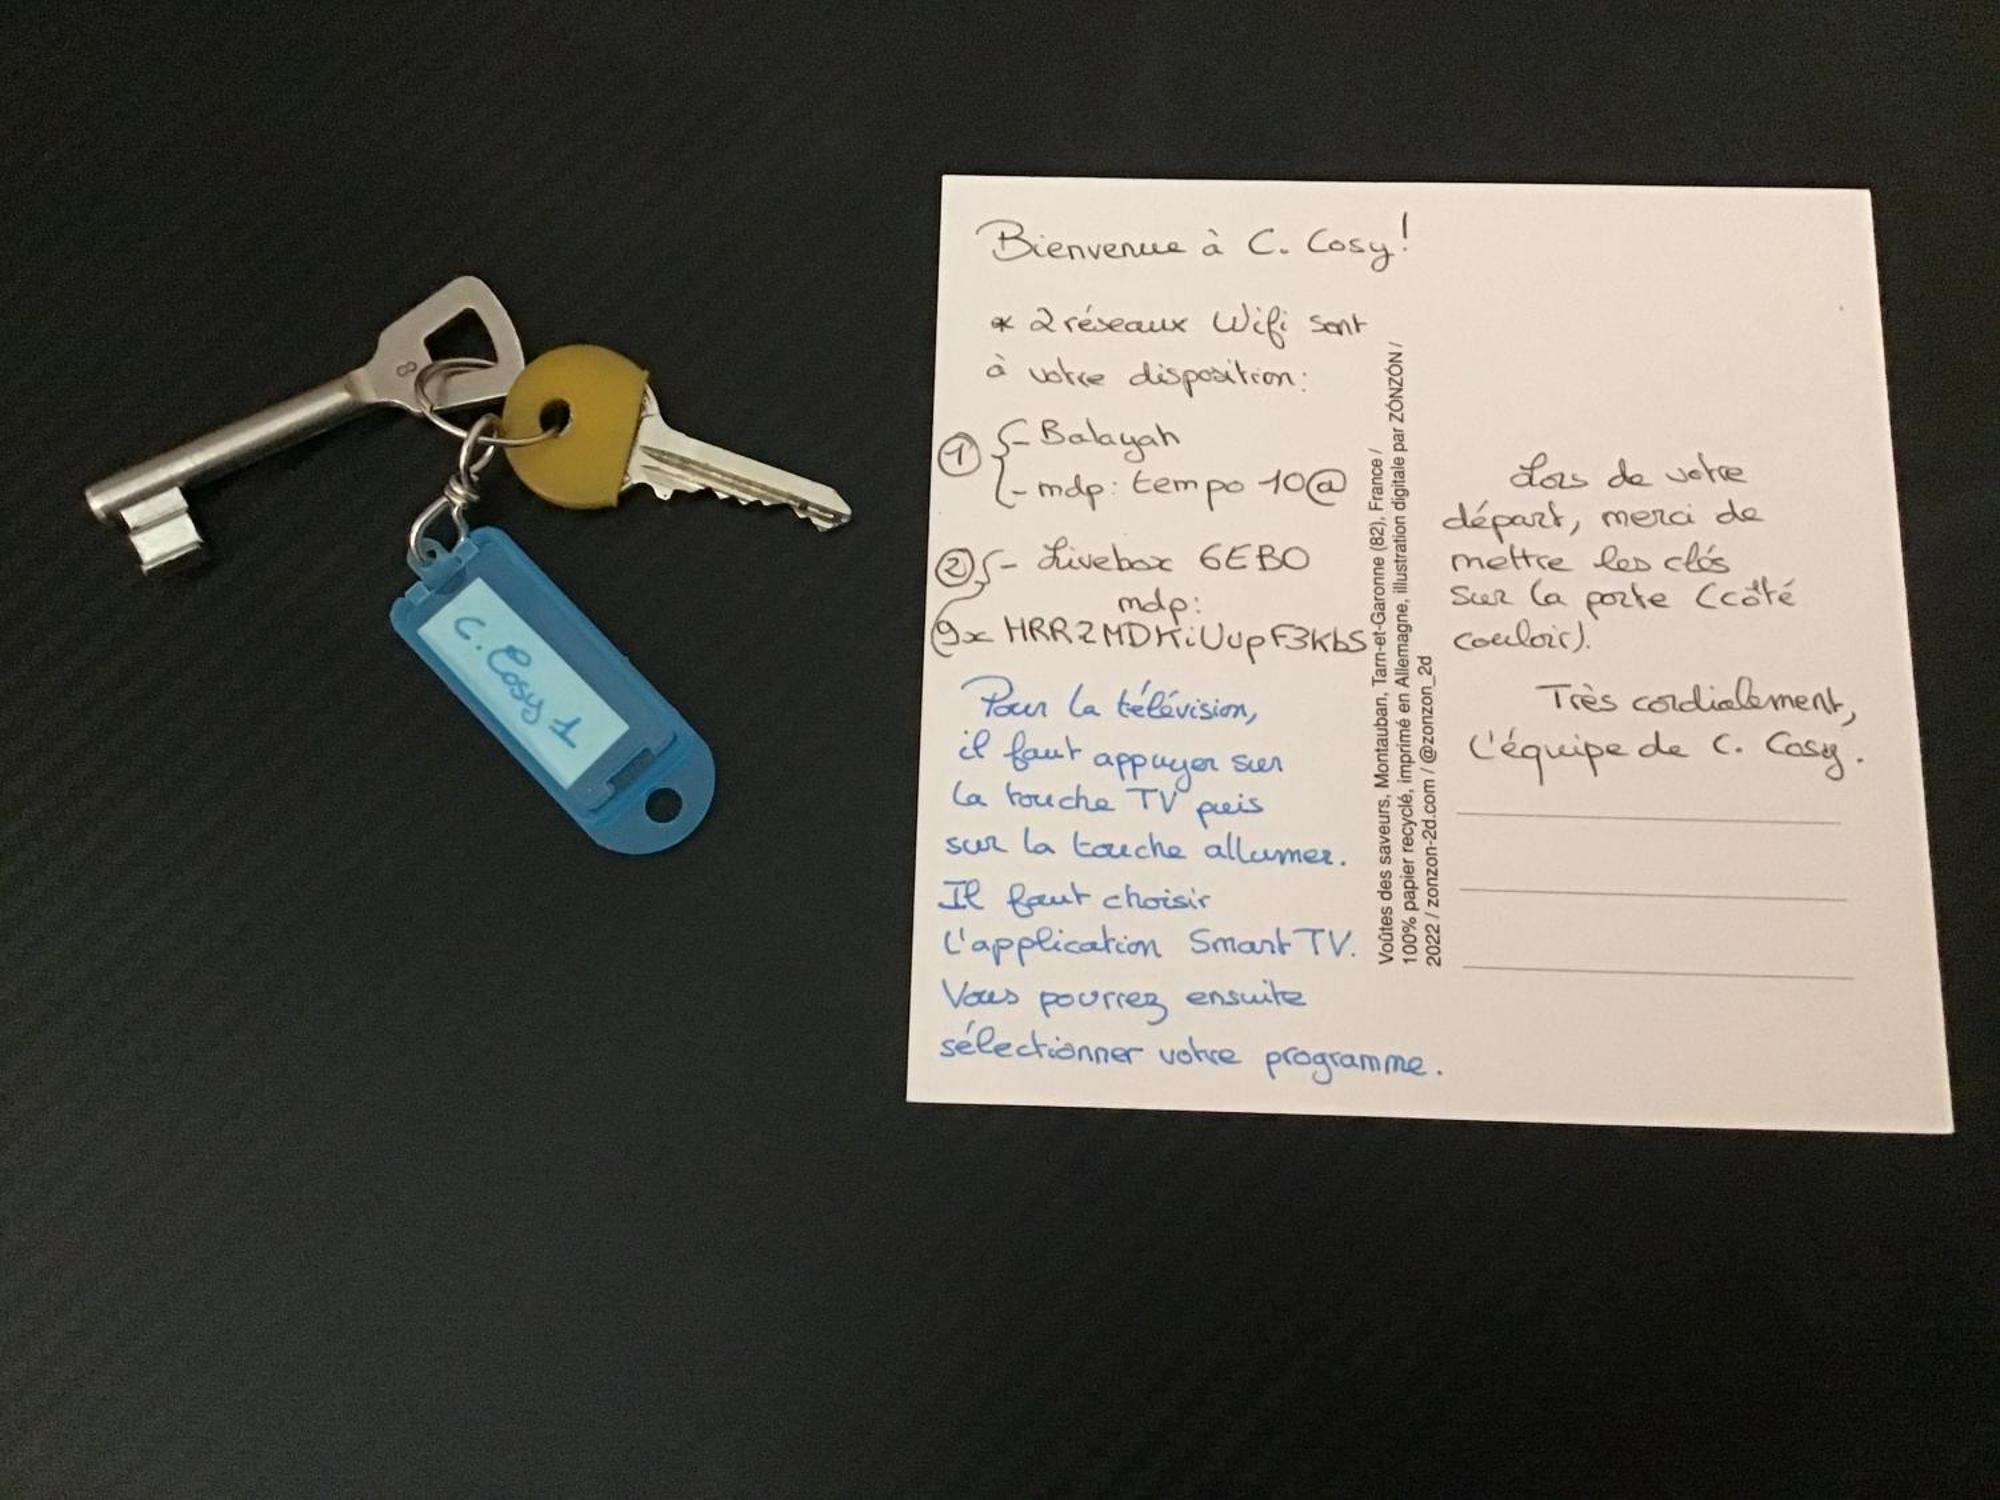 8
C. Cosy 1
Bienvenue à C. Cosy!
* 2 réseaux Wifi sont
à votre disposition:
① - Balayah
- mdp: tempo 10@
② - Livebox 6EB0
mdp:
9x HRRZMDKiUupF3KbS
Pour la télévision,
il faut appuyer sur
la touche TV puis
sur la touche allumer.
Il faut choisir
l'application Smart TV.
Vous pourrez ensuite
sélectionner votre programme.
Voûtes des saveurs, Montauban, Tarn-et-Garonne (82), France /
100% papier recyclé, imprimé en Allemagne, illustration digitale par ZÓNZÓN /
2022 / zonzon-2d.com / @zonzon_2d
Lors de votre
départ, merci de
mettre les clés
sur la porte (côté
couloir).
Très cordialement,
L'équipe de C. Cosy.